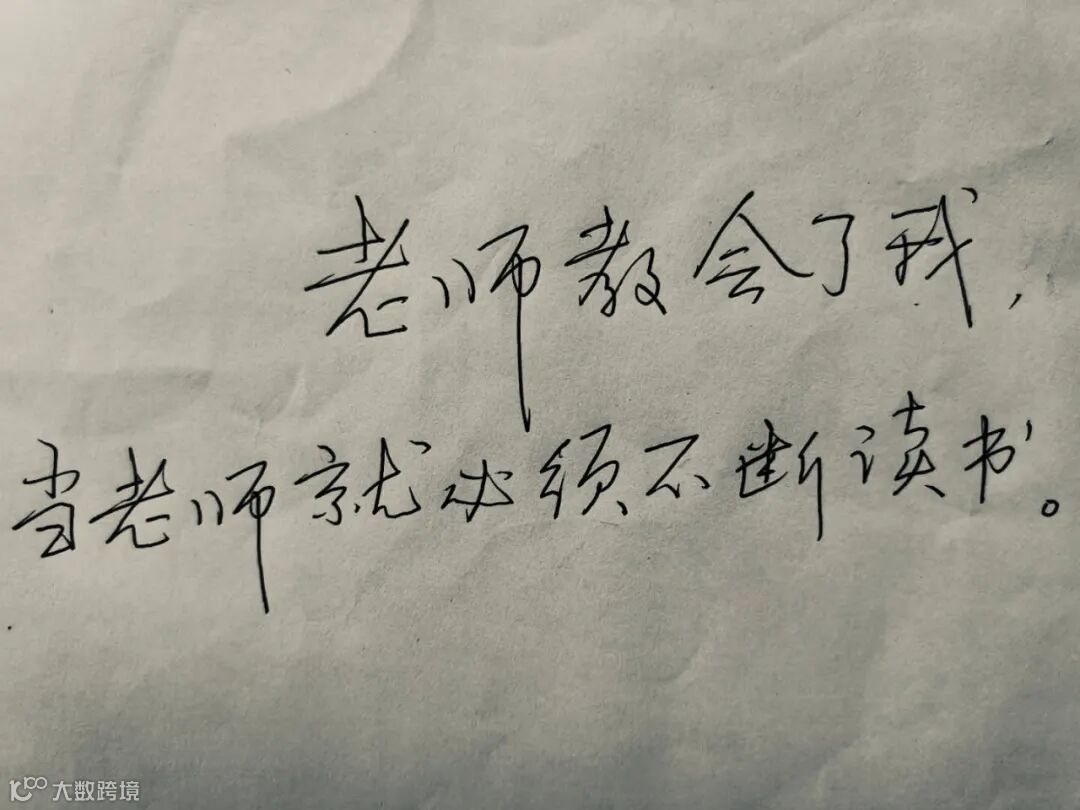 老师教会了我，
当老师就必须不断读书。
大数跨境